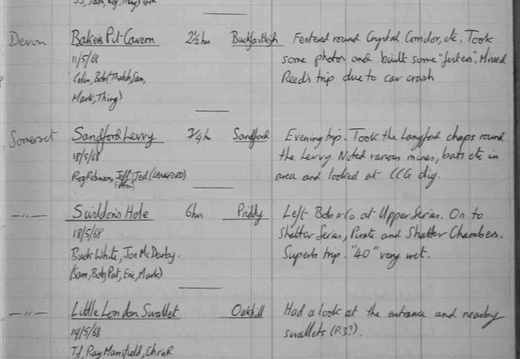 Devon Baker Pit Cavern 2½hr Buckfastleigh Festered round Crystal Corridor, etc. Took
11/5/68 some photos and built some "festers". Missed
Colin, Bob, Sam, Reed's trip due to car crash
Mark, Thing)
Somerset Sandford Levvy ¾hr Sandford Evening trip. Took the Langford chaps round
15/5/68 the Levvy. Noted various mines, bats etc in
Roy Jeff, Jed area and looked at CCG dig.
—"— Swildon's Hole 6hrs Priddy Left Bob & co at Upper Series. On to
18/5/68 Shelter Series, Pirate and Shatter Chambers.
Buck White, Joe McDerby. Superb trip. "40" very wet.
(Sam, Bob, Pat, Eric, Mark)
—"— Little London Swallet Oakhill Had a look at the entrance and nearby
19/5/68 swallets (P.3?).
TJ, Ray Mansfield, Chris R